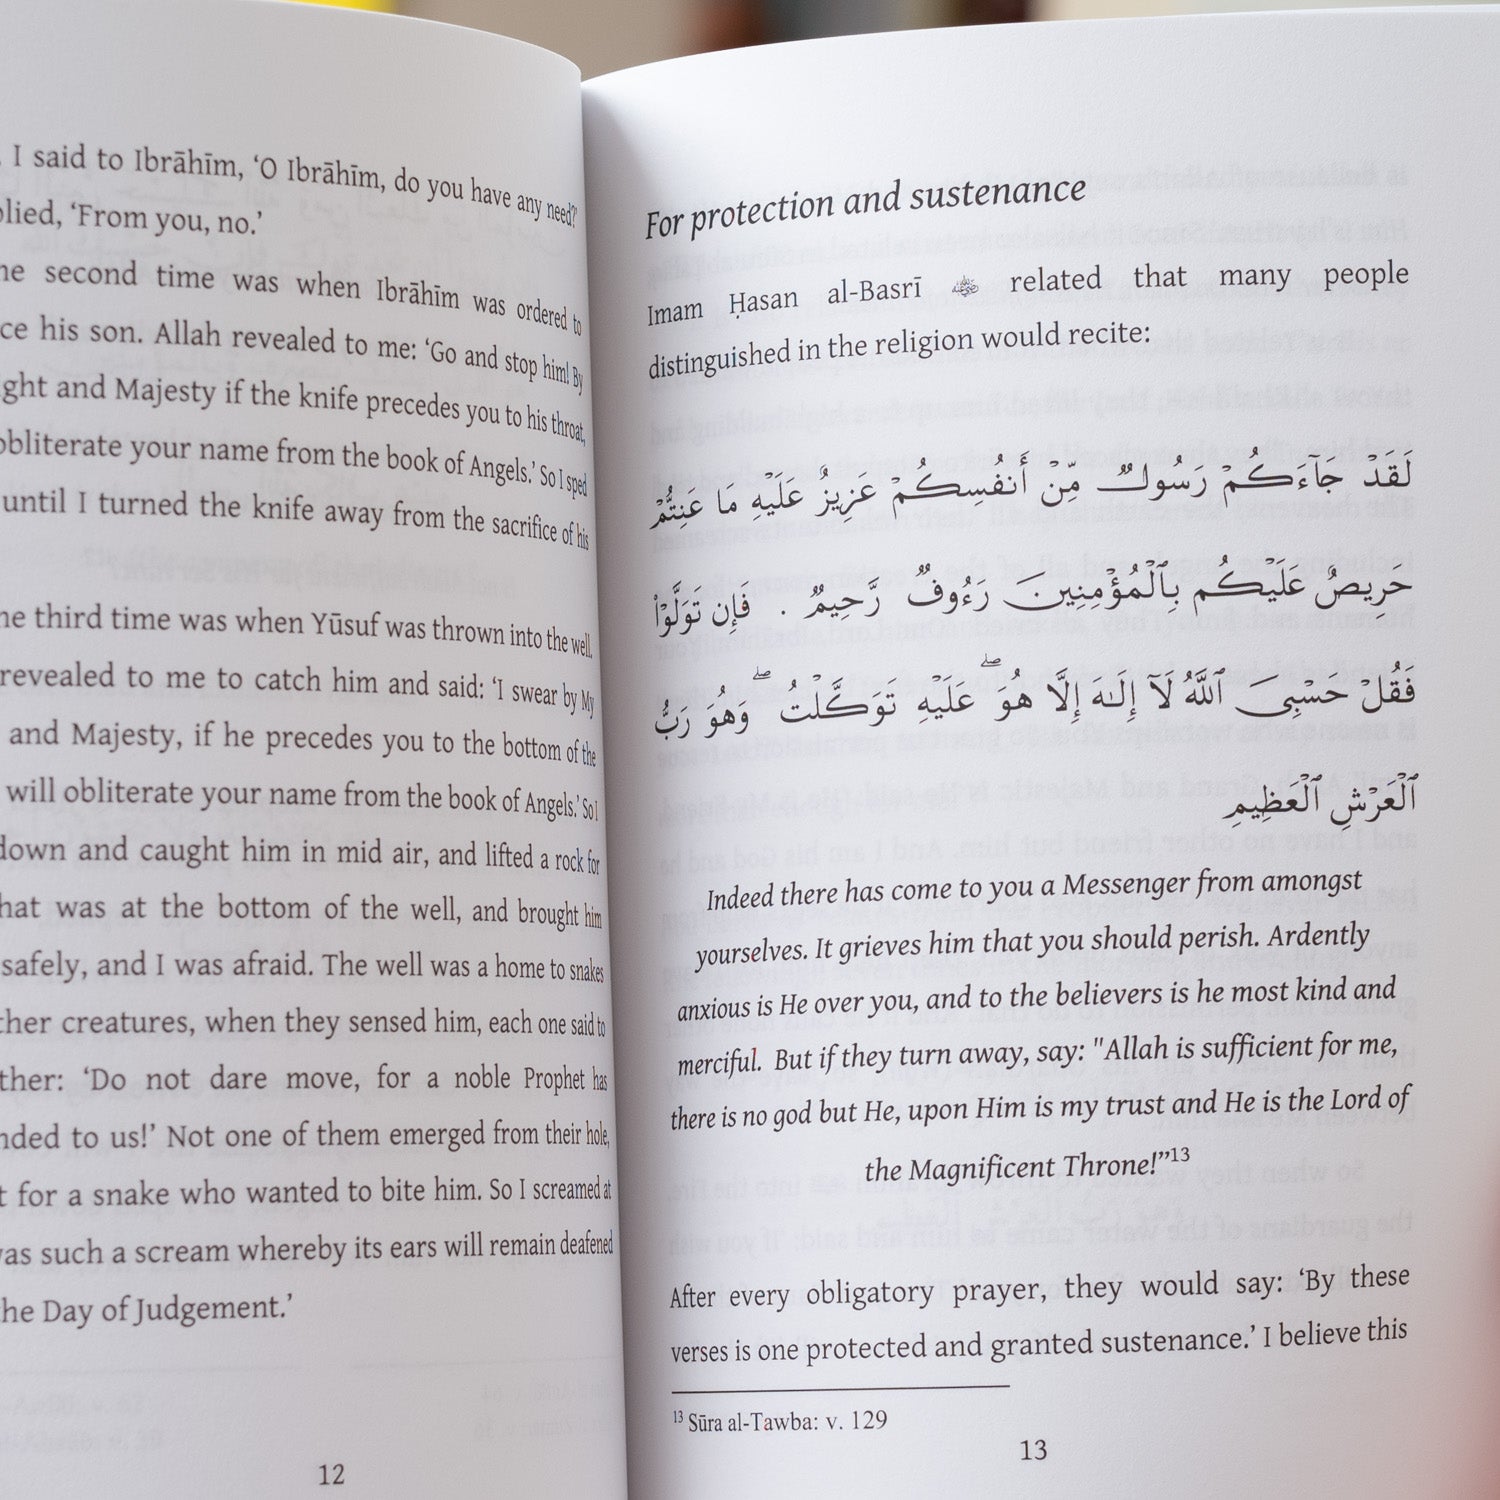 I said to Ibrāhīm, ‘O Ibrāhīm, do you have any need?’
plied, ‘From you, no.’
he second time was when Ibrāhīm was ordered to
ce his son. Allah revealed to me: ‘Go and stop him! By
ght and Majesty if the knife precedes you to his throat,
obliterate your name from the book of Angels.’ So I sped
until I turned the knife away from the sacrifice of his
he third time was when Yūsuf was thrown into the well.
revealed to me to catch him and said: ‘I swear by My
and Majesty, if he precedes you to the bottom of the
will obliterate your name from the book of Angels.’ So I
down and caught him in mid air, and lifted a rock for
hat was at the bottom of the well, and brought him
safely, and I was afraid. The well was a home to snakes
ther creatures, when they sensed him, each one said to
ther: ‘Do not dare move, for a noble Prophet has
nded to us!’ Not one of them emerged from their hole,
t for a snake who wanted to bite him. So I screamed at
vas such a scream whereby its ears will remain deafened
he Day of Judgement.’
12
For protection and sustenance
Imam Ḥasan al-Basrī related that many people
distinguished in the religion would recite:
لَقَدْ جَآءَكُمْ رَسُولٌ مِّنْ أَنفُسِكُمْ عَزِيزٌ عَلَيْهِ مَا عَنِتُّمْ
حَرِيصٌ عَلَيْكُم بِٱلْمُؤْمِنِينَ رَءُوفٌ رَّحِيمٌ . فَإِن تَوَلَّوْا۟
فَقُلْ حَسْبِىَ ٱللَّهُ لَآ إِلَـٰهَ إِلَّا هُوَ ۖ عَلَيْهِ تَوَكَّلْتُ ۖ وَهُوَ رَبُّ
ٱلْعَرْشِ ٱلْعَظِيمِ
Indeed there has come to you a Messenger from amongst
yourselves. It grieves him that you should perish. Ardently
anxious is He over you, and to the believers is he most kind and
merciful. But if they turn away, say: "Allah is sufficient for me,
there is no god but He, upon Him is my trust and He is the Lord of
the Magnificent Throne!”13
After every obligatory prayer, they would say: ‘By these
verses is one protected and granted sustenance.’ I believe this
13 Sūra al-Tawba: v. 129
13